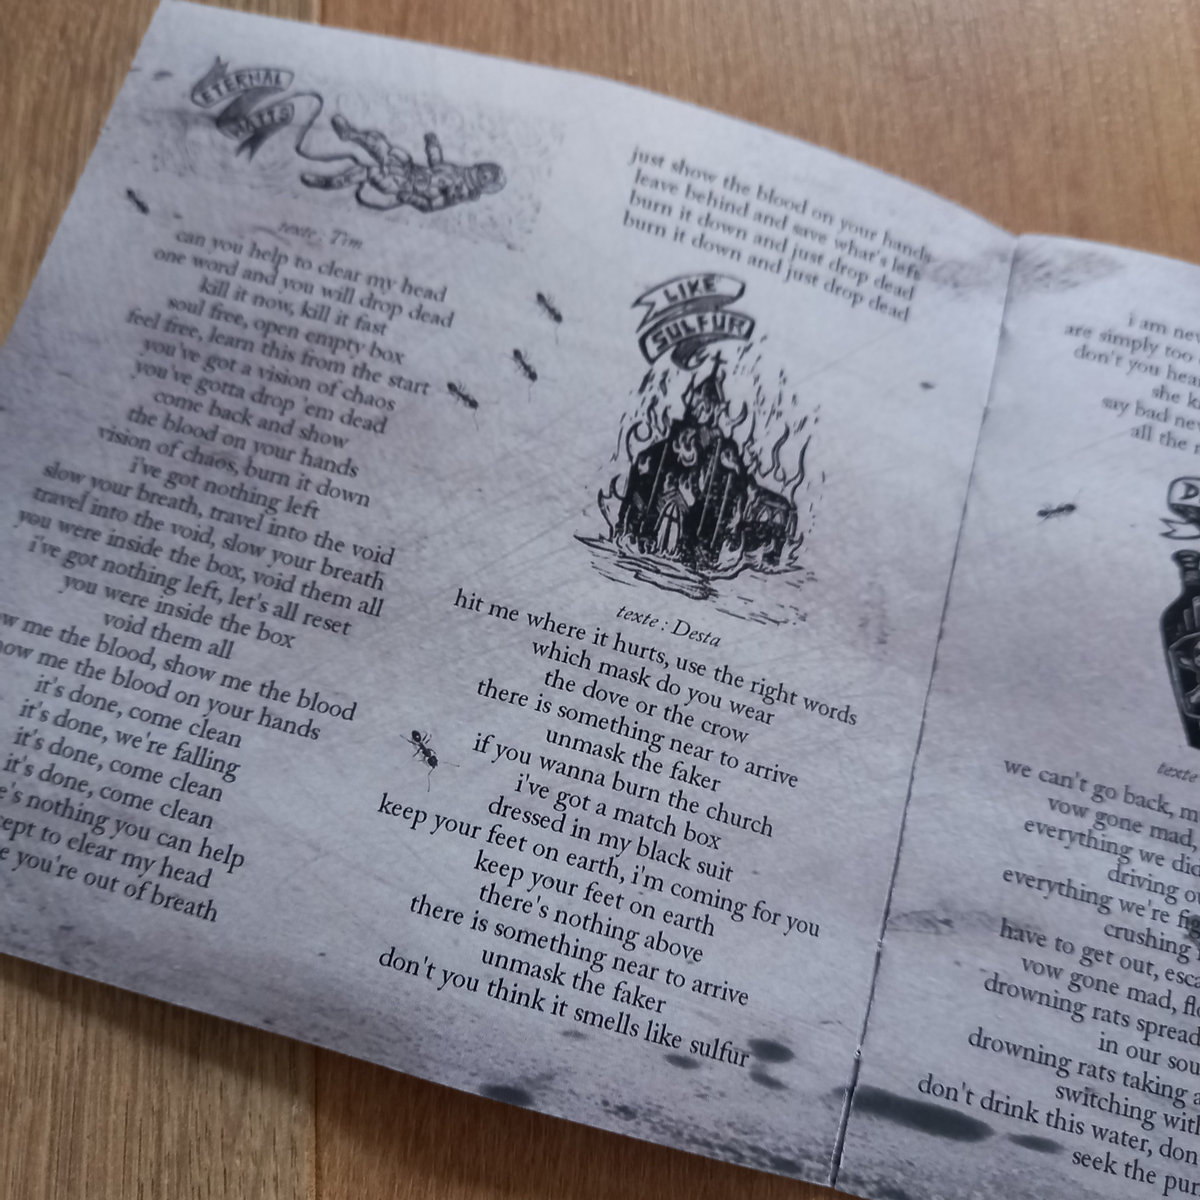 ETERNAL
WAITS
texte : Tim
can you help to clear my head
one word and you will drop dead
kill it now, kill it fast
soul free, open empty box
feel free, learn this from the start
you've got a vision of chaos
you've gotta drop 'em dead
come back and show
the blood on your hands
vision of chaos, burn it down
i've got nothing left
slow your breath, travel into the void
travel into the void, slow your breath
you were inside the box, void them all
i've got nothing left, let's all reset
you were inside the box
void them all
me the blood, show me the blood
me the blood on your hands
it's done, come clean
it's done, we're falling
it's done, come clean
it's done, come clean
nothing you can help
to clear my head
you're out of breath
just show the blood on your hands
leave behind and save what's left
burn it down and just drop dead
burn it down and just drop dead
LIKE
SULFUR
texte : Desta
hit me where it hurts, use the right words
which mask do you wear
the dove or the crow
there is something near to arrive
unmask the faker
if you wanna burn the church
i've got a match box
dressed in my black suit
keep your feet on earth, i'm coming for you
keep your feet on earth
there's nothing above
there is something near to arrive
unmask the faker
don't you think it smells like sulfur
i am
are simply too
don't you
she
say bad
all the
texte
we can't go back,
vow gone mad,
everything we did
driving
everything we're
crushing
have to get out,
vow gone mad,
drowning rats spread
in our
drowning rats taking
switching
don't drink this water,
seek the